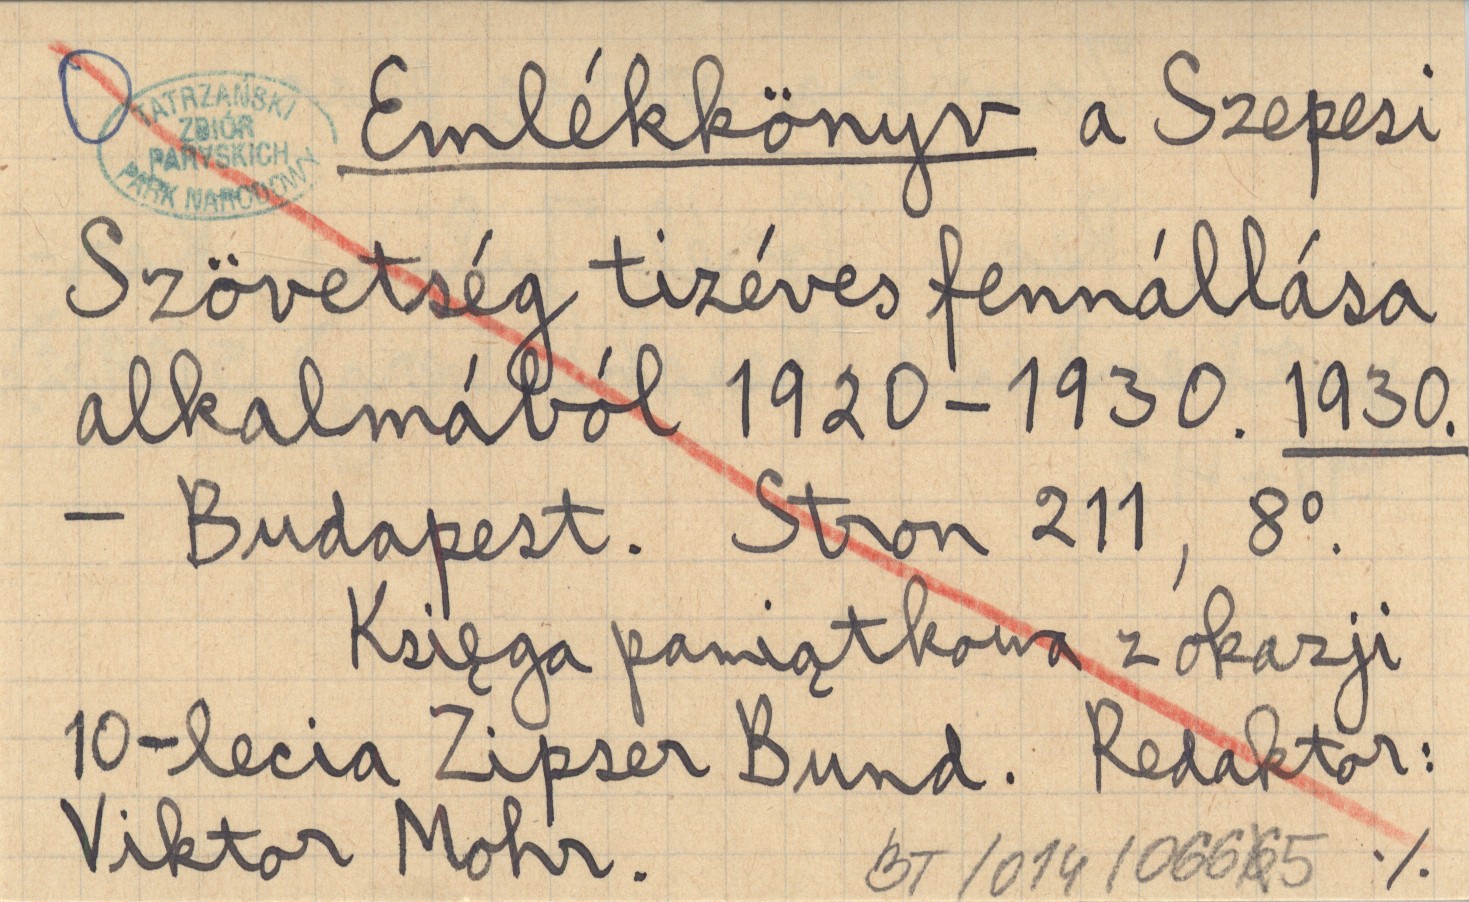 TATRZAŃSKI
ZBIÓR
PARYSKICH
PARK NARODOWY
Emlékkönyv a Szepesi
Szövetség tizéves fennállása
alkalmából 1920-1930. 1930.
- Budapest. Stron 211, 8°.
Księga pamiątkowa z okazji
10-lecia Zipser Bund. Redaktor:
Viktor Mohr.
BT /014 / ./.